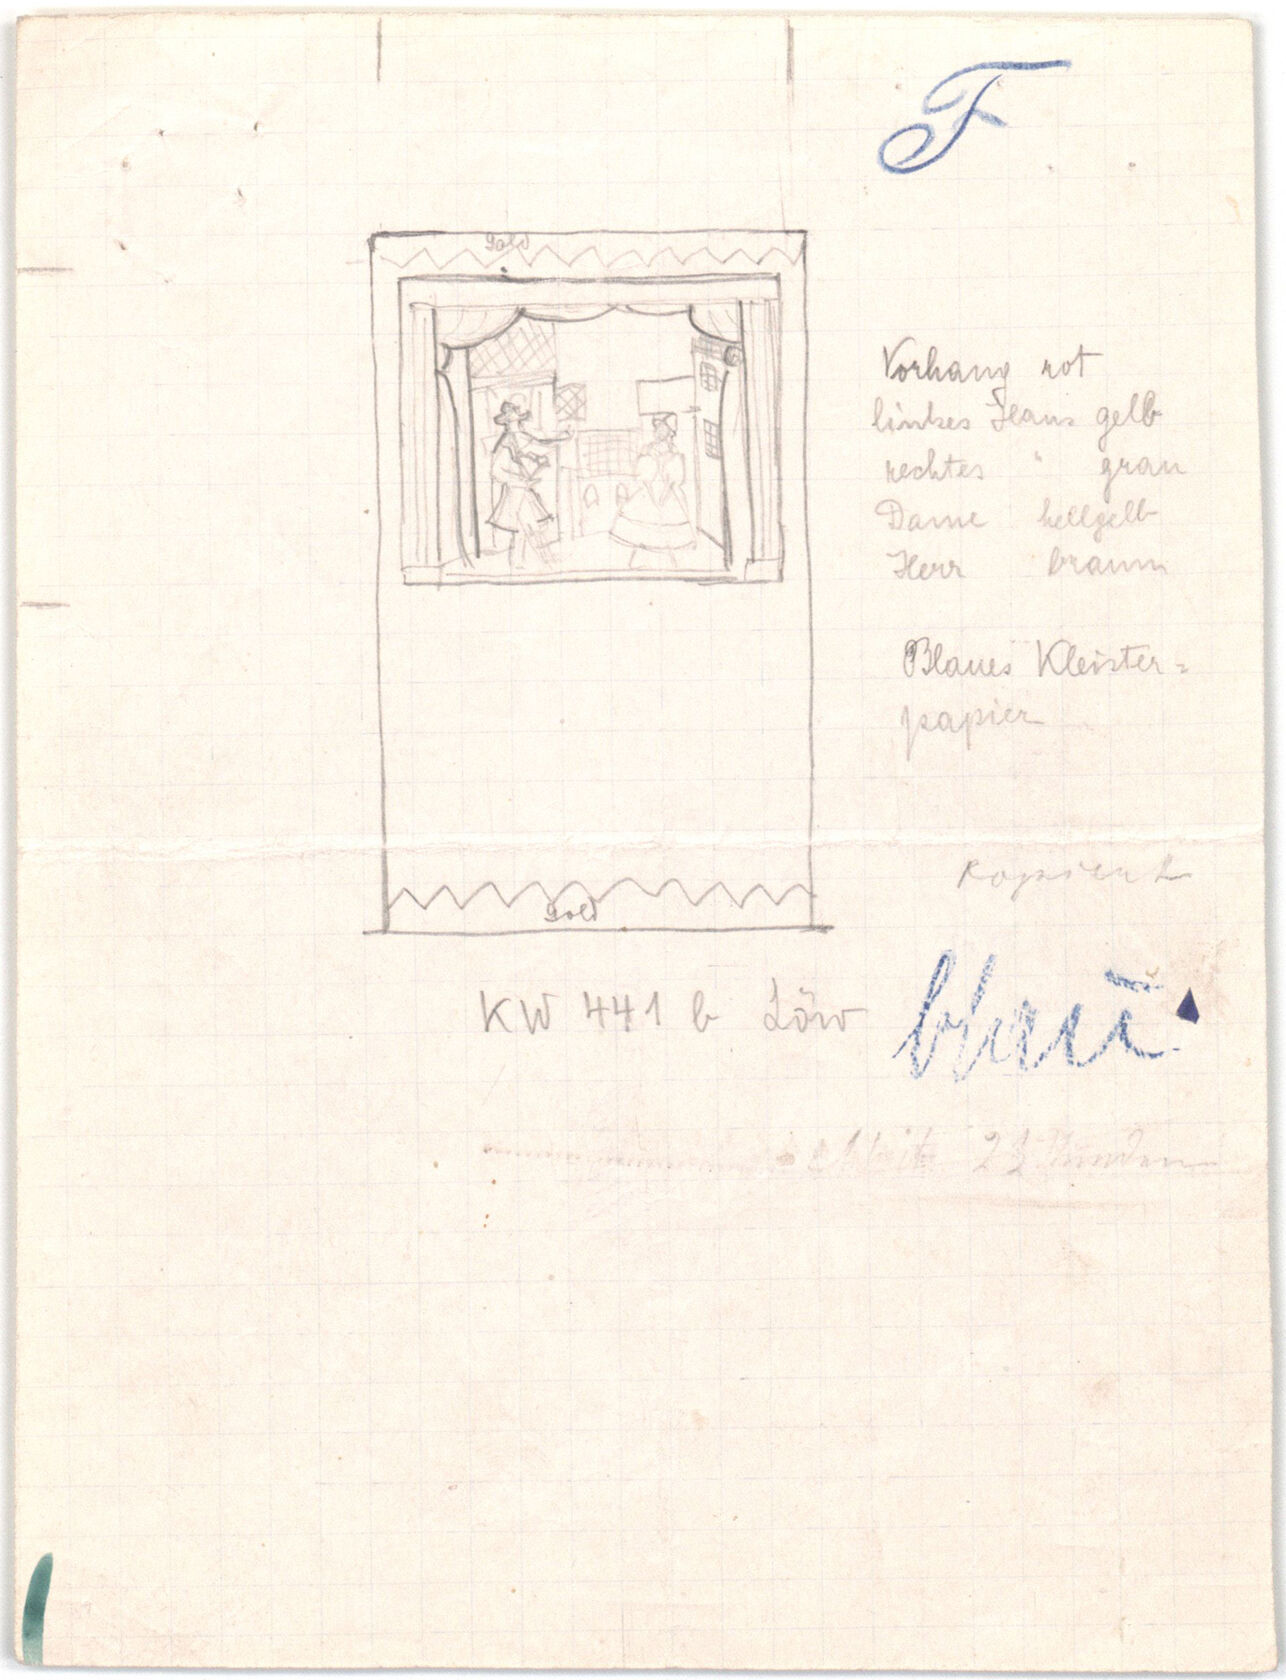 F
Gold
Vorhang rot
linkes Haus gelb
rechtes " grau
Dame hellgelb
Herr braun
Blaues Kleister=
papier
kopiert
Gold
KW 441 b Löw
blau